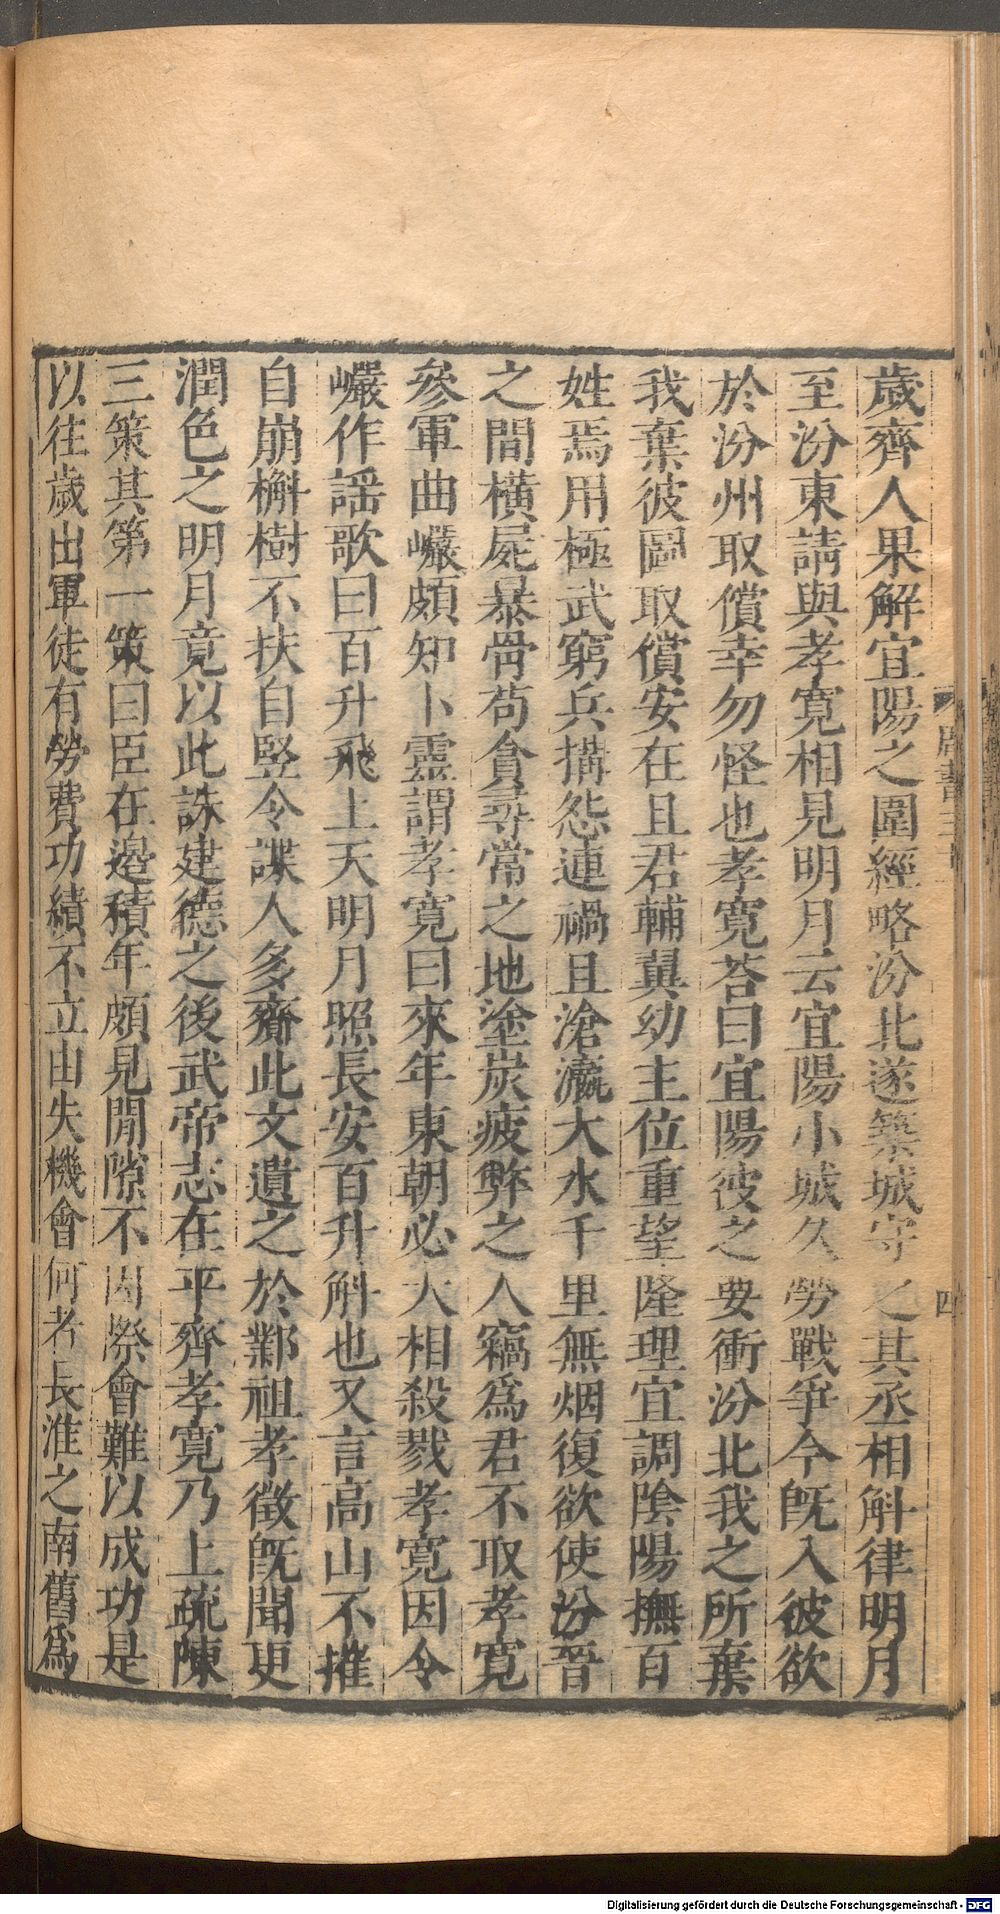 歲齊人果解宜陽之圍經略汾北遂築城守之其丞相斛律明月
至汾東請與孝寬相見明月云宜陽小城久勞戰爭今旣入彼欲
於汾州取償幸勿怪也孝寬荅曰宜陽彼之要衝汾北我之所棄
我棄彼圖取償安在且君輔翼幼主位重望隆理宜調陰陽撫百
姓焉用極武窮兵搆怨連禍且滄瀛大水千里無烟復欲使汾晉
之間橫屍暴骨苟貪尋常之地塗炭疲弊之人竊爲君不取孝寬
參軍曲巖頗知卜靈謂孝寬曰來年東朝必大相殺戮孝寬因令
巖作謡歌曰百升飛上天明月照長安百升斛也又言高山不摧
自崩槲樹不扶自竪令諜人多齎此文遺之於鄴祖孝徵旣聞更
潤色之明月竟以此誅建德之後武帝志在平齊孝寬乃上疏陳
三策其第一策曰臣在邊積年頗見閒隙不因際會難以成功是
以往歲出軍徒有勞費功績不立由失機會何者長淮之南舊爲
周書三
四
Digitalisierung gefördert durch die Deutsche Forschungsgemeinschaft - DFG